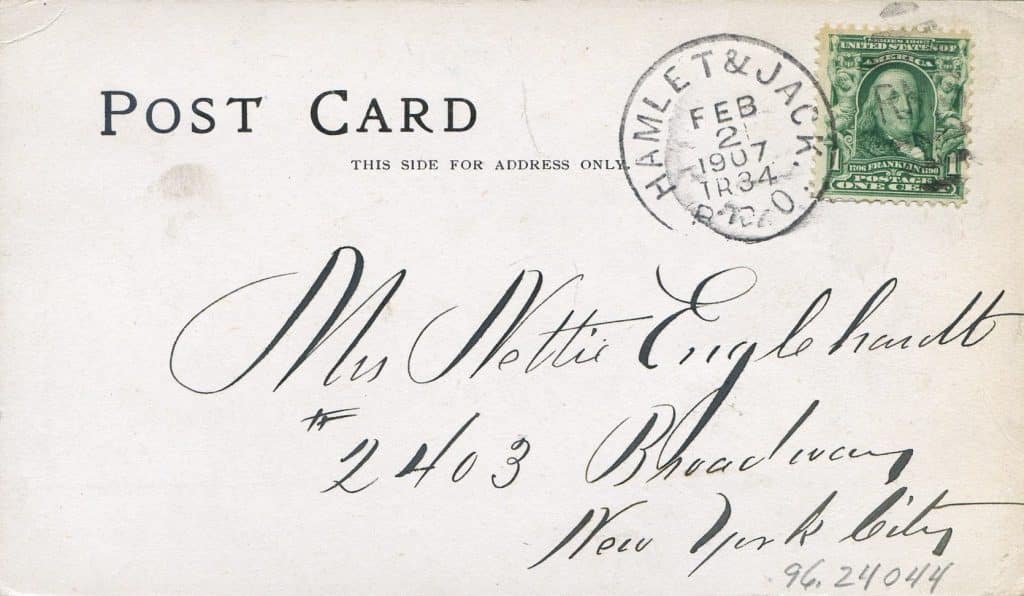 POST CARD
THIS SIDE FOR ADDRESS ONLY.
HAMLET & JACK.
FEB
2
1907
TR34
R.P.O.
SERIES 1902
UNITED STATES OF
AMERICA
1706 FRANKLIN 1790
1 POSTAGE 1
ONE CENT
Mrs Nettie Englehardt
# 2403 Broadway
New York City
96.24044